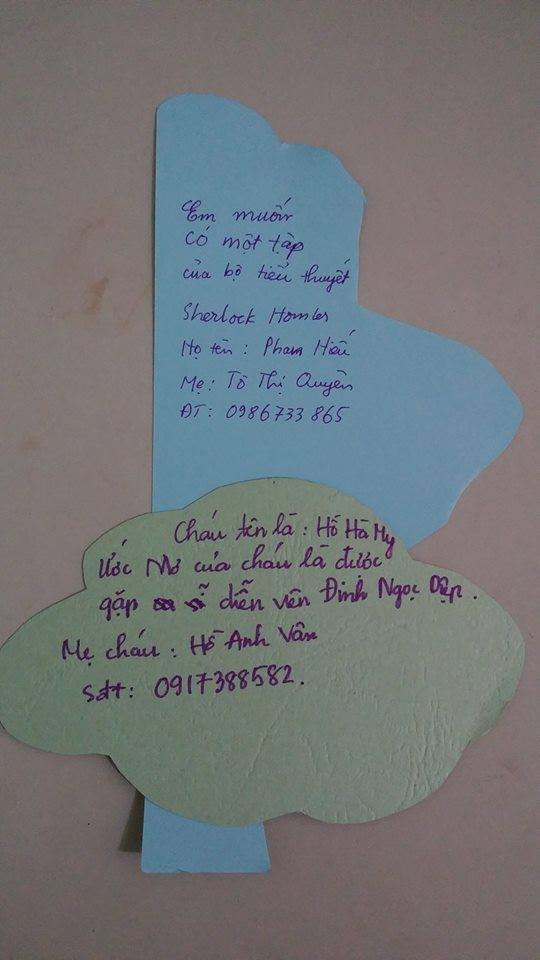 Em muốn
có một tập
của bộ tiểu thuyết
Sherlock Homles
Họ tên : Phạm Hiếu
Mẹ : Tô Thị Quyên
ĐT : 0986733 865
Cháu tên là : Hồ Hà My
Ước Mơ của cháu là được
gặp diễn viên Đinh Ngọc Diệp .
Mẹ cháu : Hồ Anh Vân
Sđt : 0917388582.